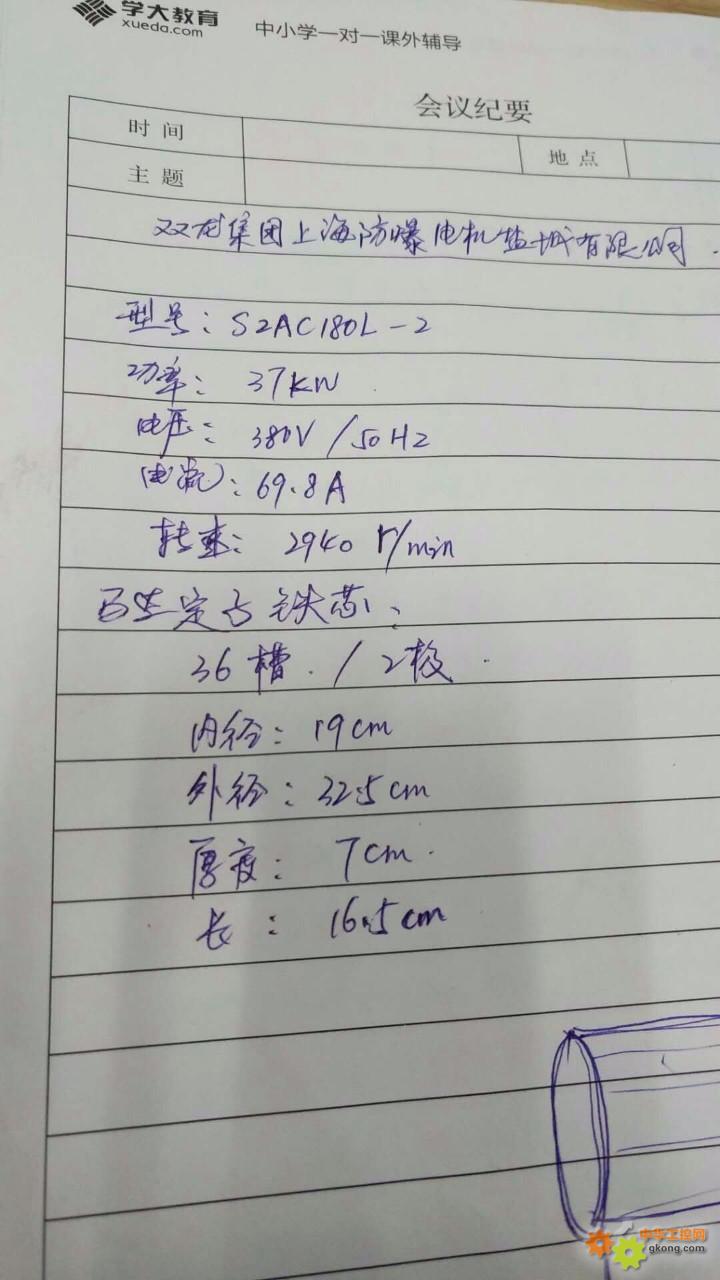 学大教育
xueda.com
中小学一对一课外辅导
会议纪要
时 间
地 点
主 题
双龙集团上海防爆电机盐城有限公司.
型号: S2AC180L-2
功率: 37KW
电压: 380V/50HZ
电流: 69.8A
转速: 2940 r/min
定子铁芯、
36槽./2极.
内径: 19cm
外径: 32.5cm
厚度: 7cm.
长: 16.5cm
中华工控网
gkong.com